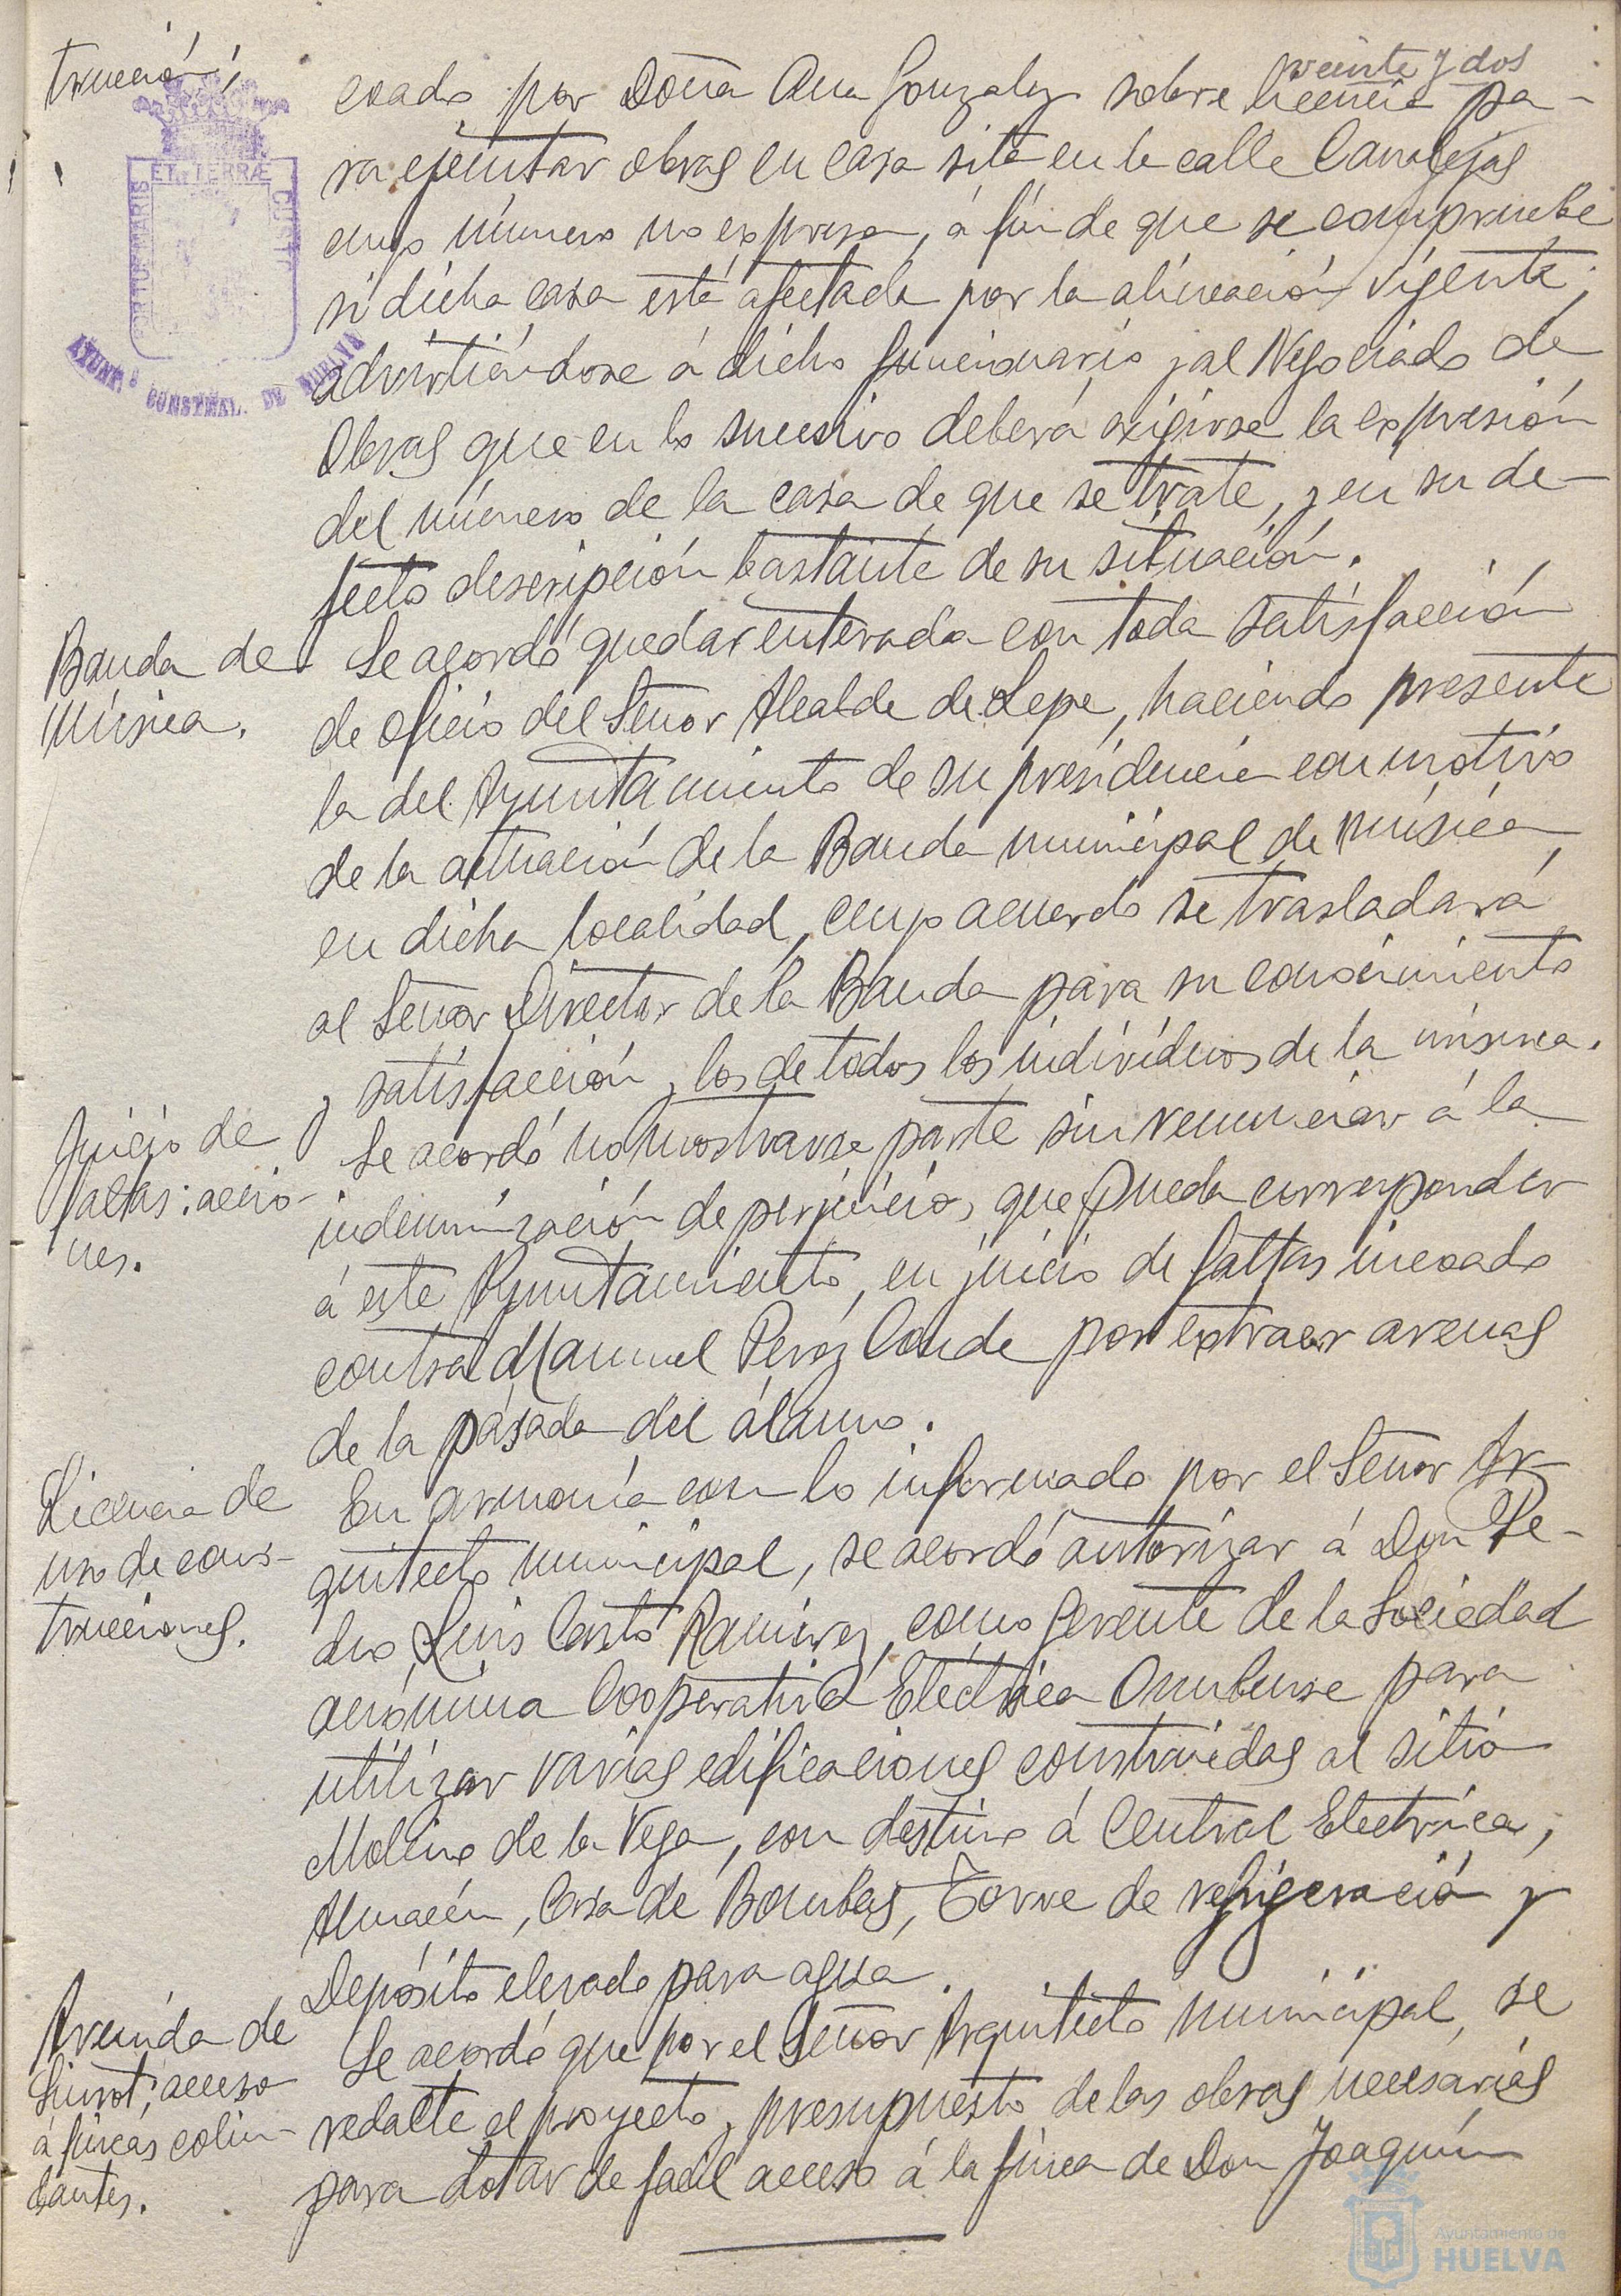 veinte y dos
trucción;
coado por Doña Ana Gonzalez sobre licencia pa-
ra ejecutar obras en casa sita en la calle Canalejas
cuyo número no expresa, á fin de que se compruebe
si dicha casa está afectada por la alineación vigente;
advirtiéndose á dicho funcionario y al Negociado de
Obras que en lo sucesivo deberá exigirse la expresión
del número de la casa de que se trate, y en su de-
fecto descripción bastante de su situación.
Banda de
Música.
Se acordó quedar enterada con toda satisfacción
de oficio del Señor Alcalde de Lepe, haciendo presente
la del Ayuntamiento de su presidencia con motivo
de la actuación de la Banda municipal de Música
en dicha localidad, cuyo acuerdo se trasladará
al Señor Director de la Banda para su conocimiento
y satisfacción y los de todos los individuos de la misma.
Juicio de
faltas: accio-
nes.
Se acordó no mostrarse parte sin renunciar á la
indemnización de perjuicios que pueda corresponder
á este Ayuntamiento, en juicio de faltas incoado
contra Manuel Peréz Conde por extraer arenas
de la pasada del álamo.
Licencia de
uso de cons-
trucciones.
En armonía con lo informado por el Señor Ar-
quitecto municipal, se acordó autorizar á Don Pe-
dro Luis Ramirez, como gerente de la Sociedad
anónima Cooperativa Eléctrica Onubense para
utilizar varias edificaciones construidas al sitio
Molino de la Vega, con destino á Central Electrica,
Almacén, Casa de Bombas, Torre de refrigeración y
Depósito elevado para agua.
Avenida de
Siurot; acceso
á fincas colin-
dantes.
Se acordó que por el Señor Arquitecto municipal, se
redacte el proyecto y presupuesto de las obras necesarias
para dotar de facil acceso á la finca de Don Joaquín
ET. TERRÆ CUSTO
PORTUS MARIS
AYUNT.º CONSTNAL. DE HUELVA
Ayuntamiento de
HUELVA